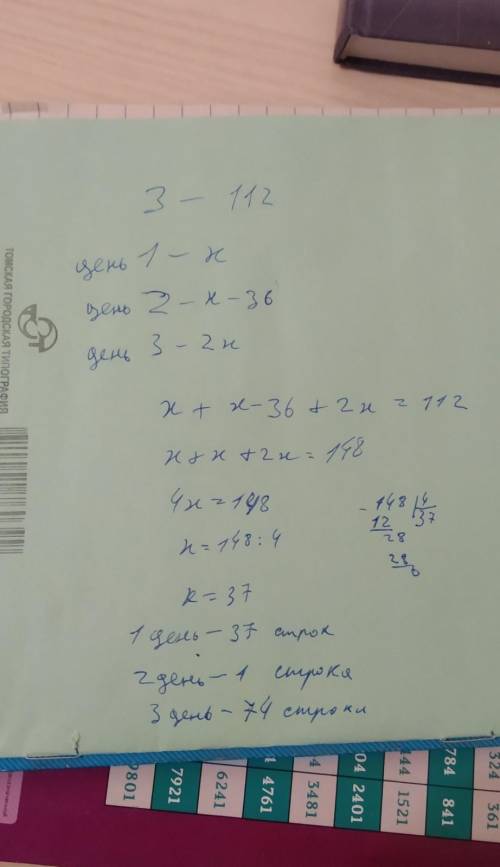 3 - 112
день 1 - x
день 2 - x - 36
день 3 - 2x
x + x - 36 + 2x = 112
x + x + 2x = 148
4x = 148
x = 148 : 4
x = 37
- 148 4
12 37
28
28
0
1 день - 37 строк
2 день - 1 строка
3 день - 74 строки
ТОМСКАЯ ГОРОДСКАЯ ТИПОГРАФИЯ
9801
7921
6241
4761
3481
2401
1521
841
361
04
144
784
324